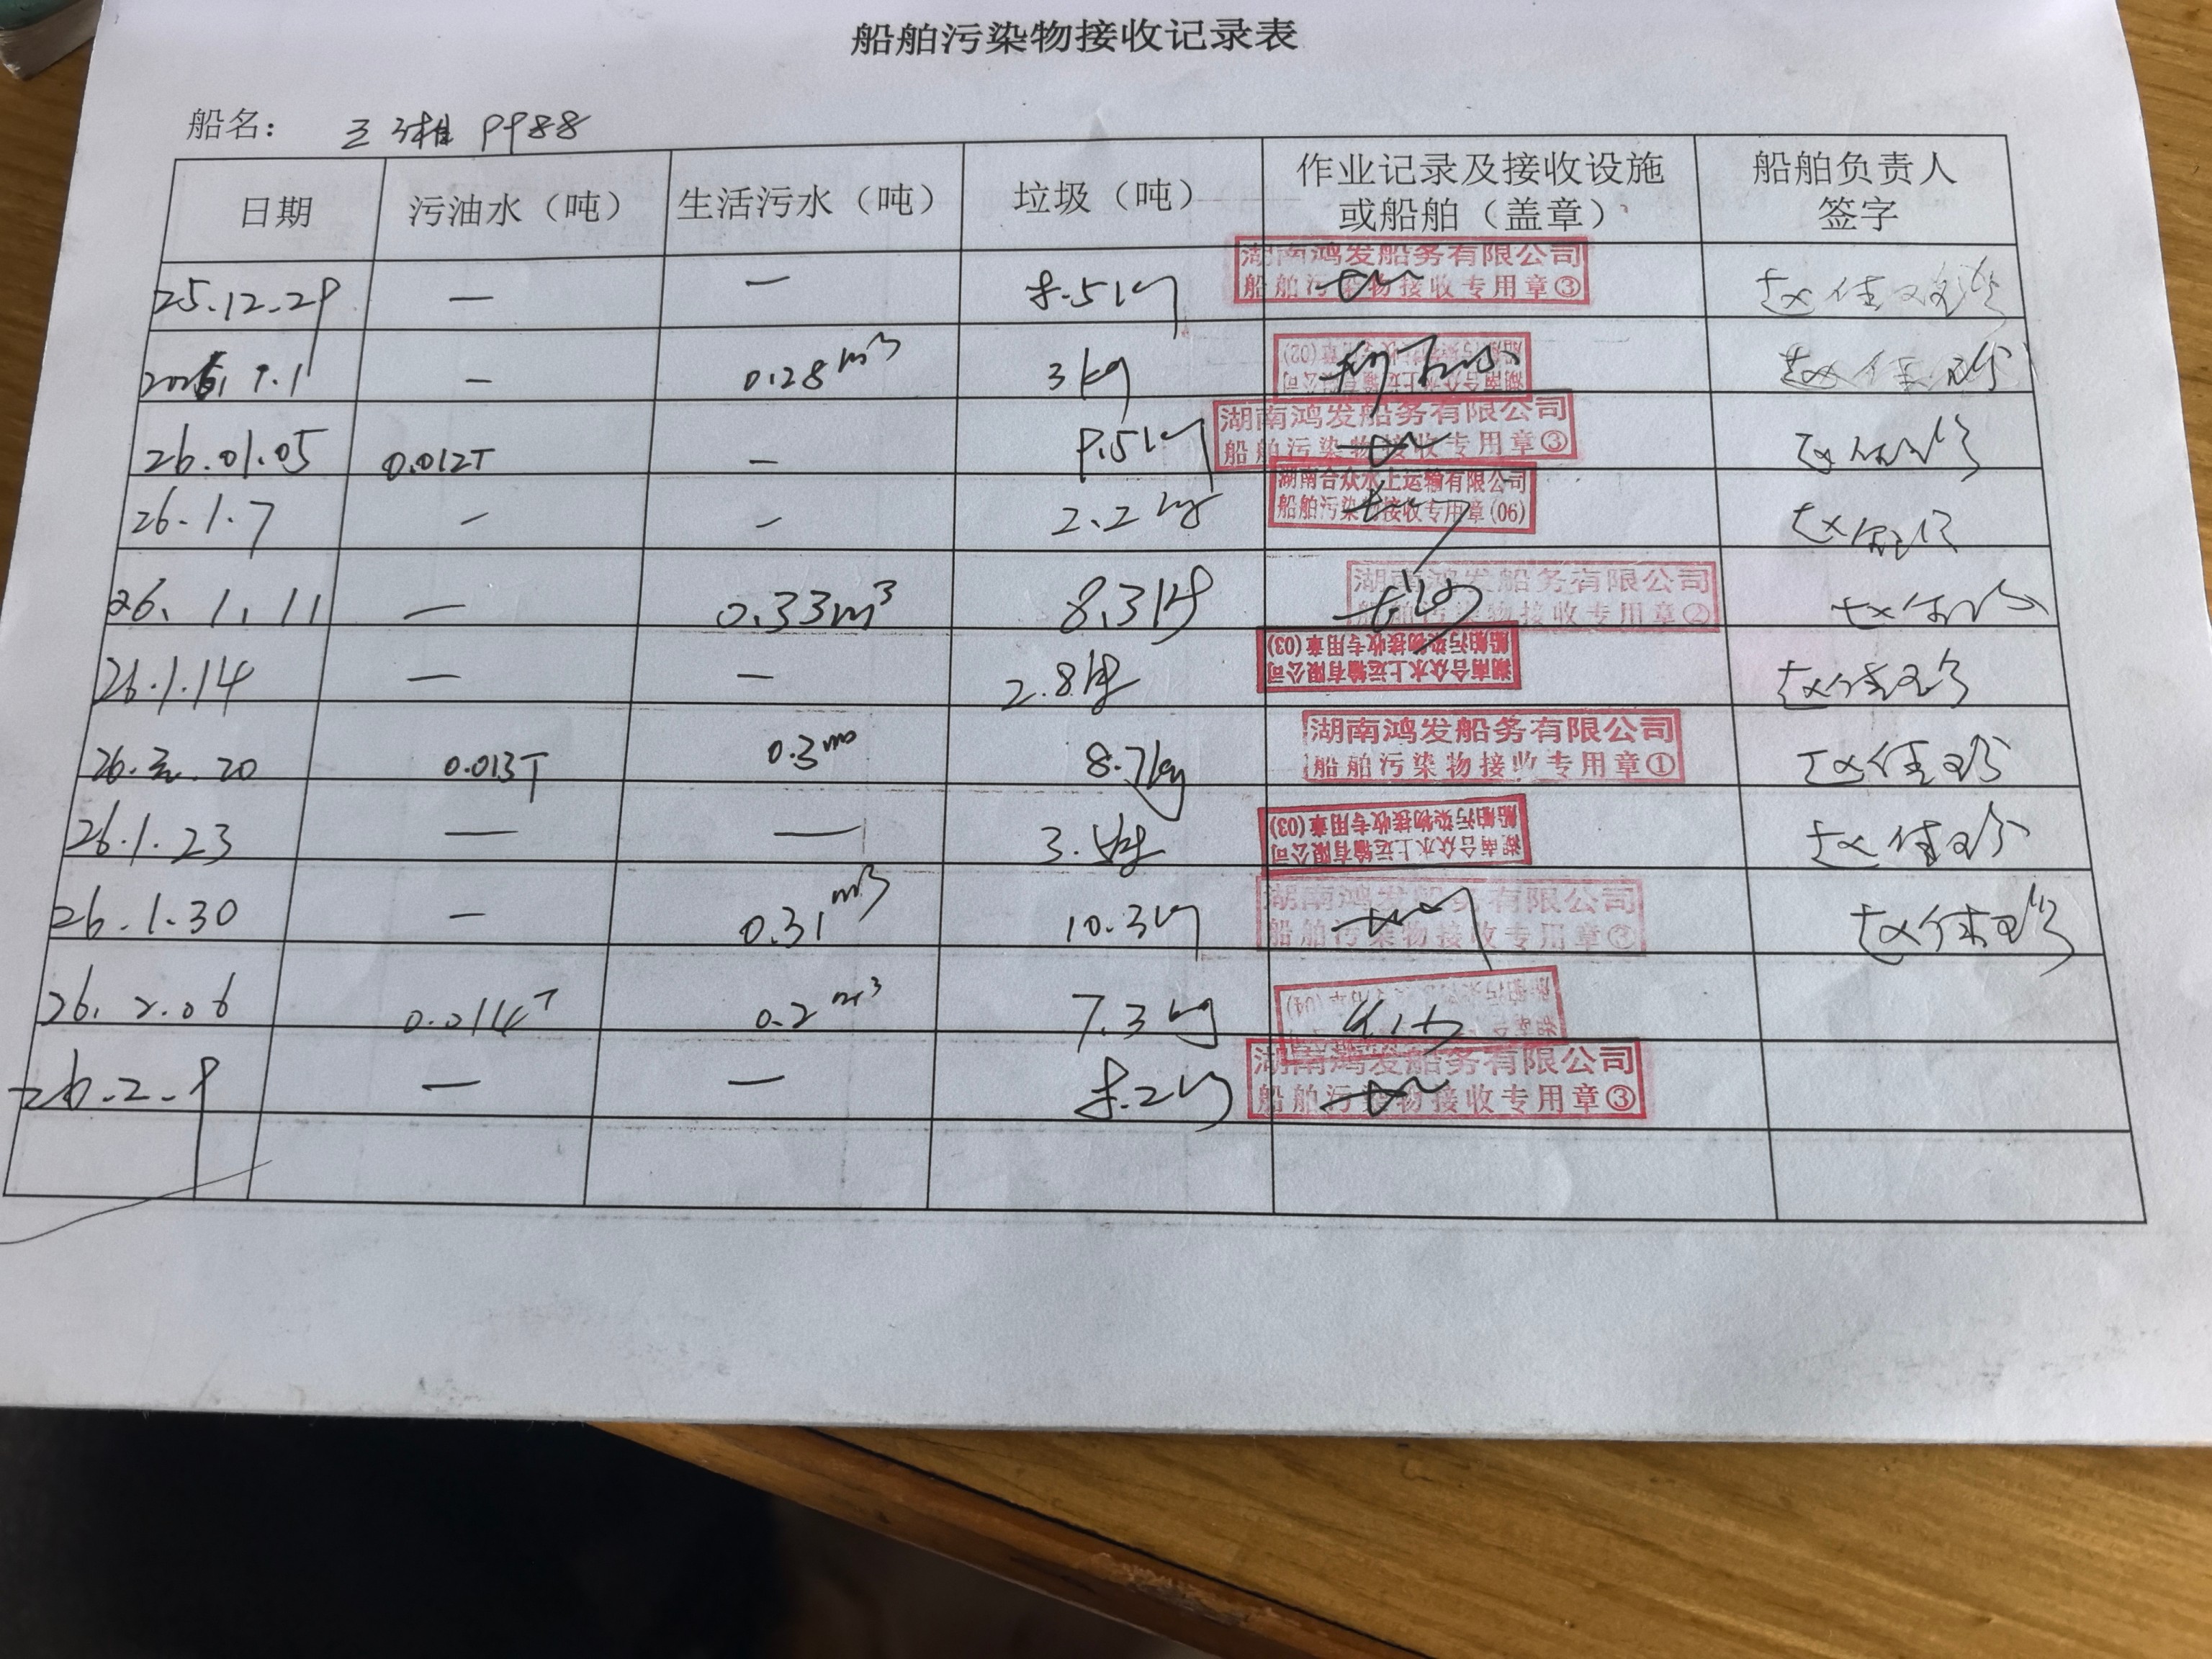 船舶污染物接收记录表
船名： 三湘9988
日期 污油水（吨） 生活污水（吨） 垃圾（吨） 作业记录及接收设施或船舶（盖章） 船舶负责人签字
25.12.29 — — 8.5kg 湖南鸿发船务有限公司 船舶污染物接收专用章③
2026.1.1 — 0.28m³ 3kg 湖南合众水上运输有限公司 船舶污染物接收专用章(02)
26.01.05 0.012T — 9.5kg 湖南鸿发船务有限公司 船舶污染物接收专用章③
26.1.7 — — 2.2kg 湖南合众水上运输有限公司 船舶污染物接收专用章(06)
26.1.11 — 0.33m³ 8.3kg 湖南鸿发船务有限公司 船舶污染物接收专用章②
26.1.14 — — 2.8kg 湖南合众水上运输有限公司 船舶污染物接收专用章(03)
26.元.20 0.013T 0.3m³ 8.7kg 湖南鸿发船务有限公司 船舶污染物接收专用章①
26.1.23 — — 湖南合众水上运输有限公司 船舶污染物接收专用章(03)
26.1.30 — 0.31m³ 10.3kg 湖南鸿发船务有限公司 船舶污染物接收专用章②
26.2.06 0.014T 0.2m³ 7.3kg (04)
26.2.9 — — 8.2kg 湖南鸿发船务有限公司 船舶污染物接收专用章③